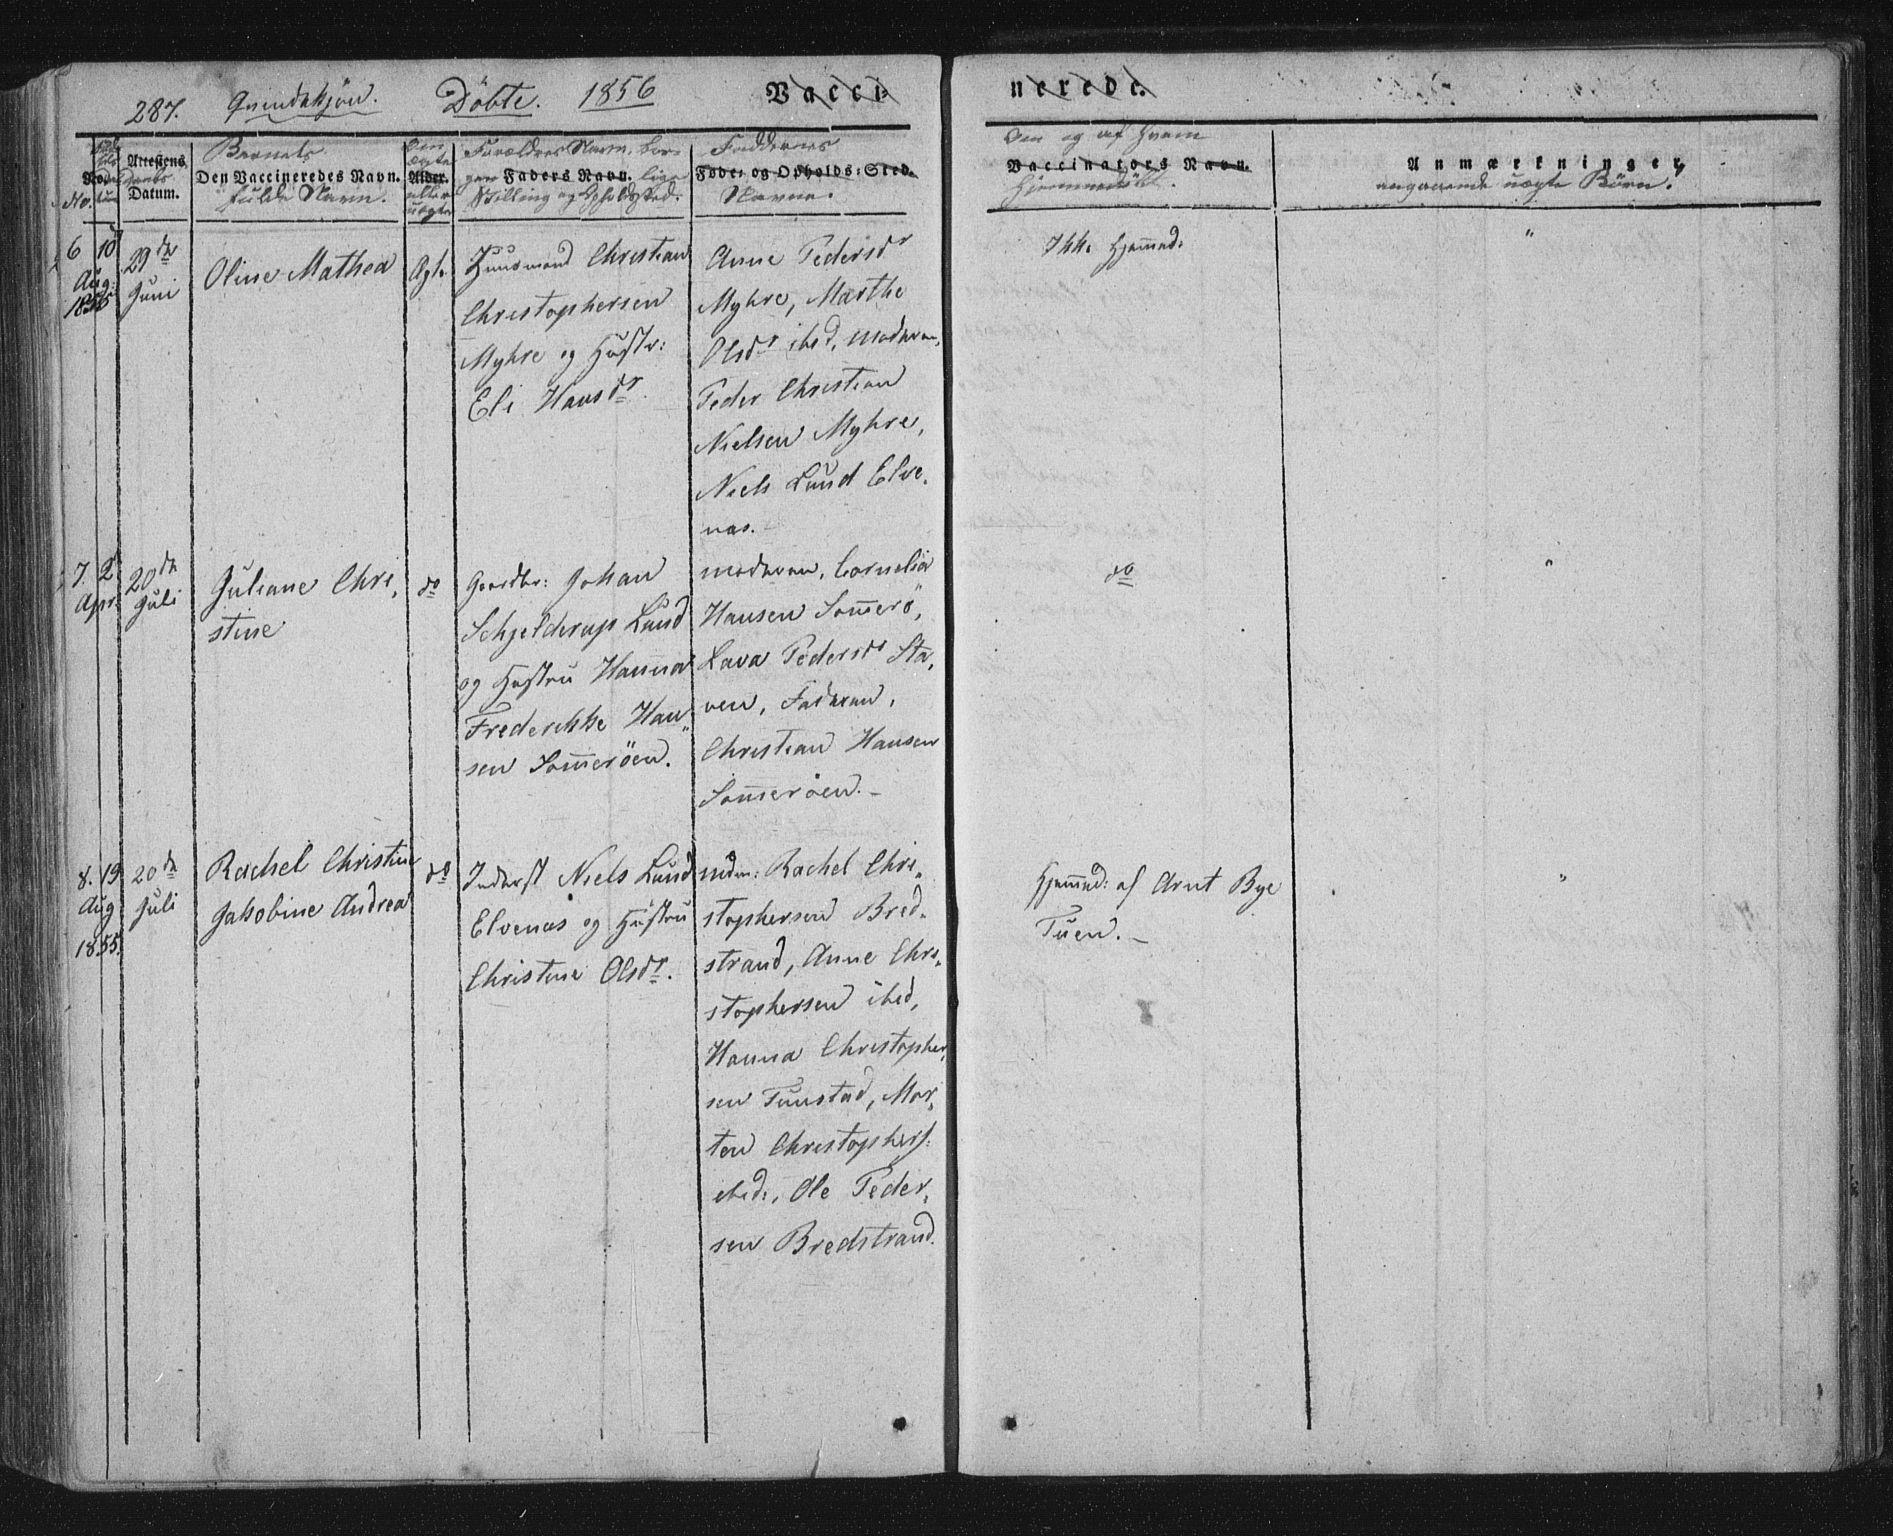 287. Qvindekjön. Döbte. 1856 Vacci-
nerede.
No. Attestens Datum.
Barnets fulde Navn.
Den Vaccineredes Navn.
Alder.
Om ægte eller uægte
Forældres Navn, bor-
Faders Navn.
Stilling og Opholdsted.
Faddernes
Føde- og Opholds-Sted.
Navne.
Om og af Hvem
Vaccinators Navn.
Hjemmedöbt.
Anmærkninger
angaaende uægte Börn.
6 10
Aug:
29de
Juni
Oline Mathea
Ægte
Huusmand Christian
Christophersen
Myhre og Hustr:
Eli Hansdr.
Anne Pedersdr
Myhre, Marthe
Olsdr ibed, moderen,
Peder Christian
Nielsen Myhre,
Niels Lund Elve,
næs.
Ikke Hjemmed:
"
7. 2
Apr:
20de
Juli
Juliane Chri,
stine
do
Gaardbr: Johan
Schjelderup Lund
og Hustru Hanna
Frederikke Han,,
sen Sommeröen.
moderen, Cornelia
Hansen Sommerö,
Lava Pedersdr Sta,
ven, Faderen,
Christian Hansen
Sommeröen.-
do
"
8. 19
Aug
1855.
20de
Juli
Rachel Christine
Jakobine Andrea
do
Inderst Niels Lund
Elvenæs og Hustru
Christine Olsdr.
mdrn: Rachel Chri,,
stophersen Bred,
strand, Anne Chri,,
stophersen ibed,
Hanna Christopher,
sen Tunstad, Mor,
ten Christophers:
ibed:, Ole Peder,
sen Bredstrand.
Hjemmed: af Arnt Bye
Tuen.-
"